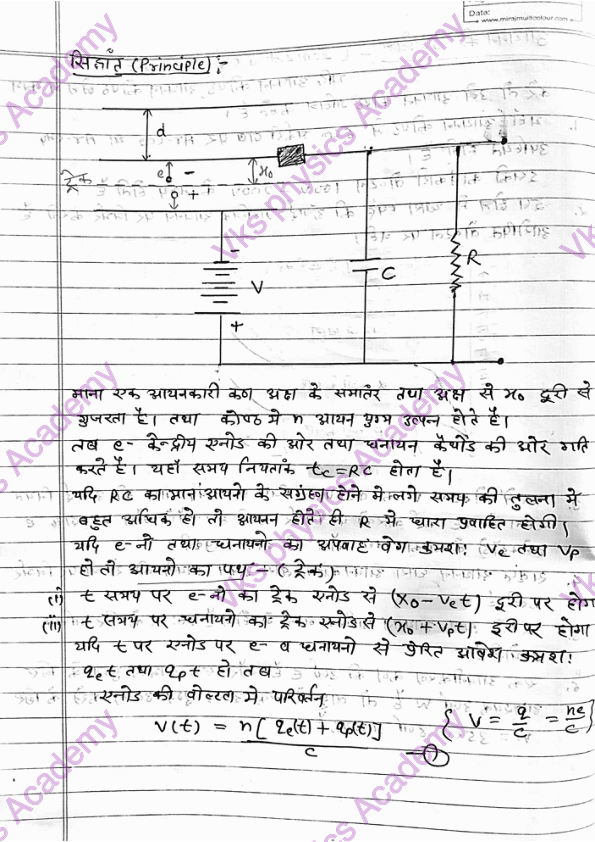 Date:
www.mirajmulticolour.com
सिद्धांत (Principle) :-
d
e -
x₀
ट्रेक
+
-
V
+
C
R
माना एक आयनकारी कण अक्ष के समातंर तथा अक्ष से x₀ दूरी से
गुजरता है। तथा कोष्ठ मे n आयन युग्म उत्पन होते है।
तब e- केन्द्रीय एनोड की ओर तथा धनायन कैथोड की ओर गति
करते है। यहाँ समय नियतांक tc = RC होता है।
यदि RC का मान आयनो के सग्रंहण होने मे लगे समय की तुलना मे
बहुत अधिक हो तो आयनन होते ही R मे धारा प्रवाहित होगी।
यदि e-नो तथा धनायनो का अपवाह वेग क्रमशः Ve तथा Vp
हो तो आयनो का पथ - ( ट्रेक)
(i) t समय पर e-नो का ट्रेक एनोड से (x₀ - Vet) दूरी पर होगा
(ii) t समय पर धनायनो का ट्रेक एनोड से (x₀ + Vpt) दूरी पर होगा
यदि t पर एनोड पर e- व धनायनो से प्रेरित आवेश क्रमशः
qet तथा qpt हो तब
एनोड की वोल्टता मे परिवर्तन
V(t) = n[qe(t) + qp(t)] / c — ① { V = q/c = ne/c }
Vks physics Academy